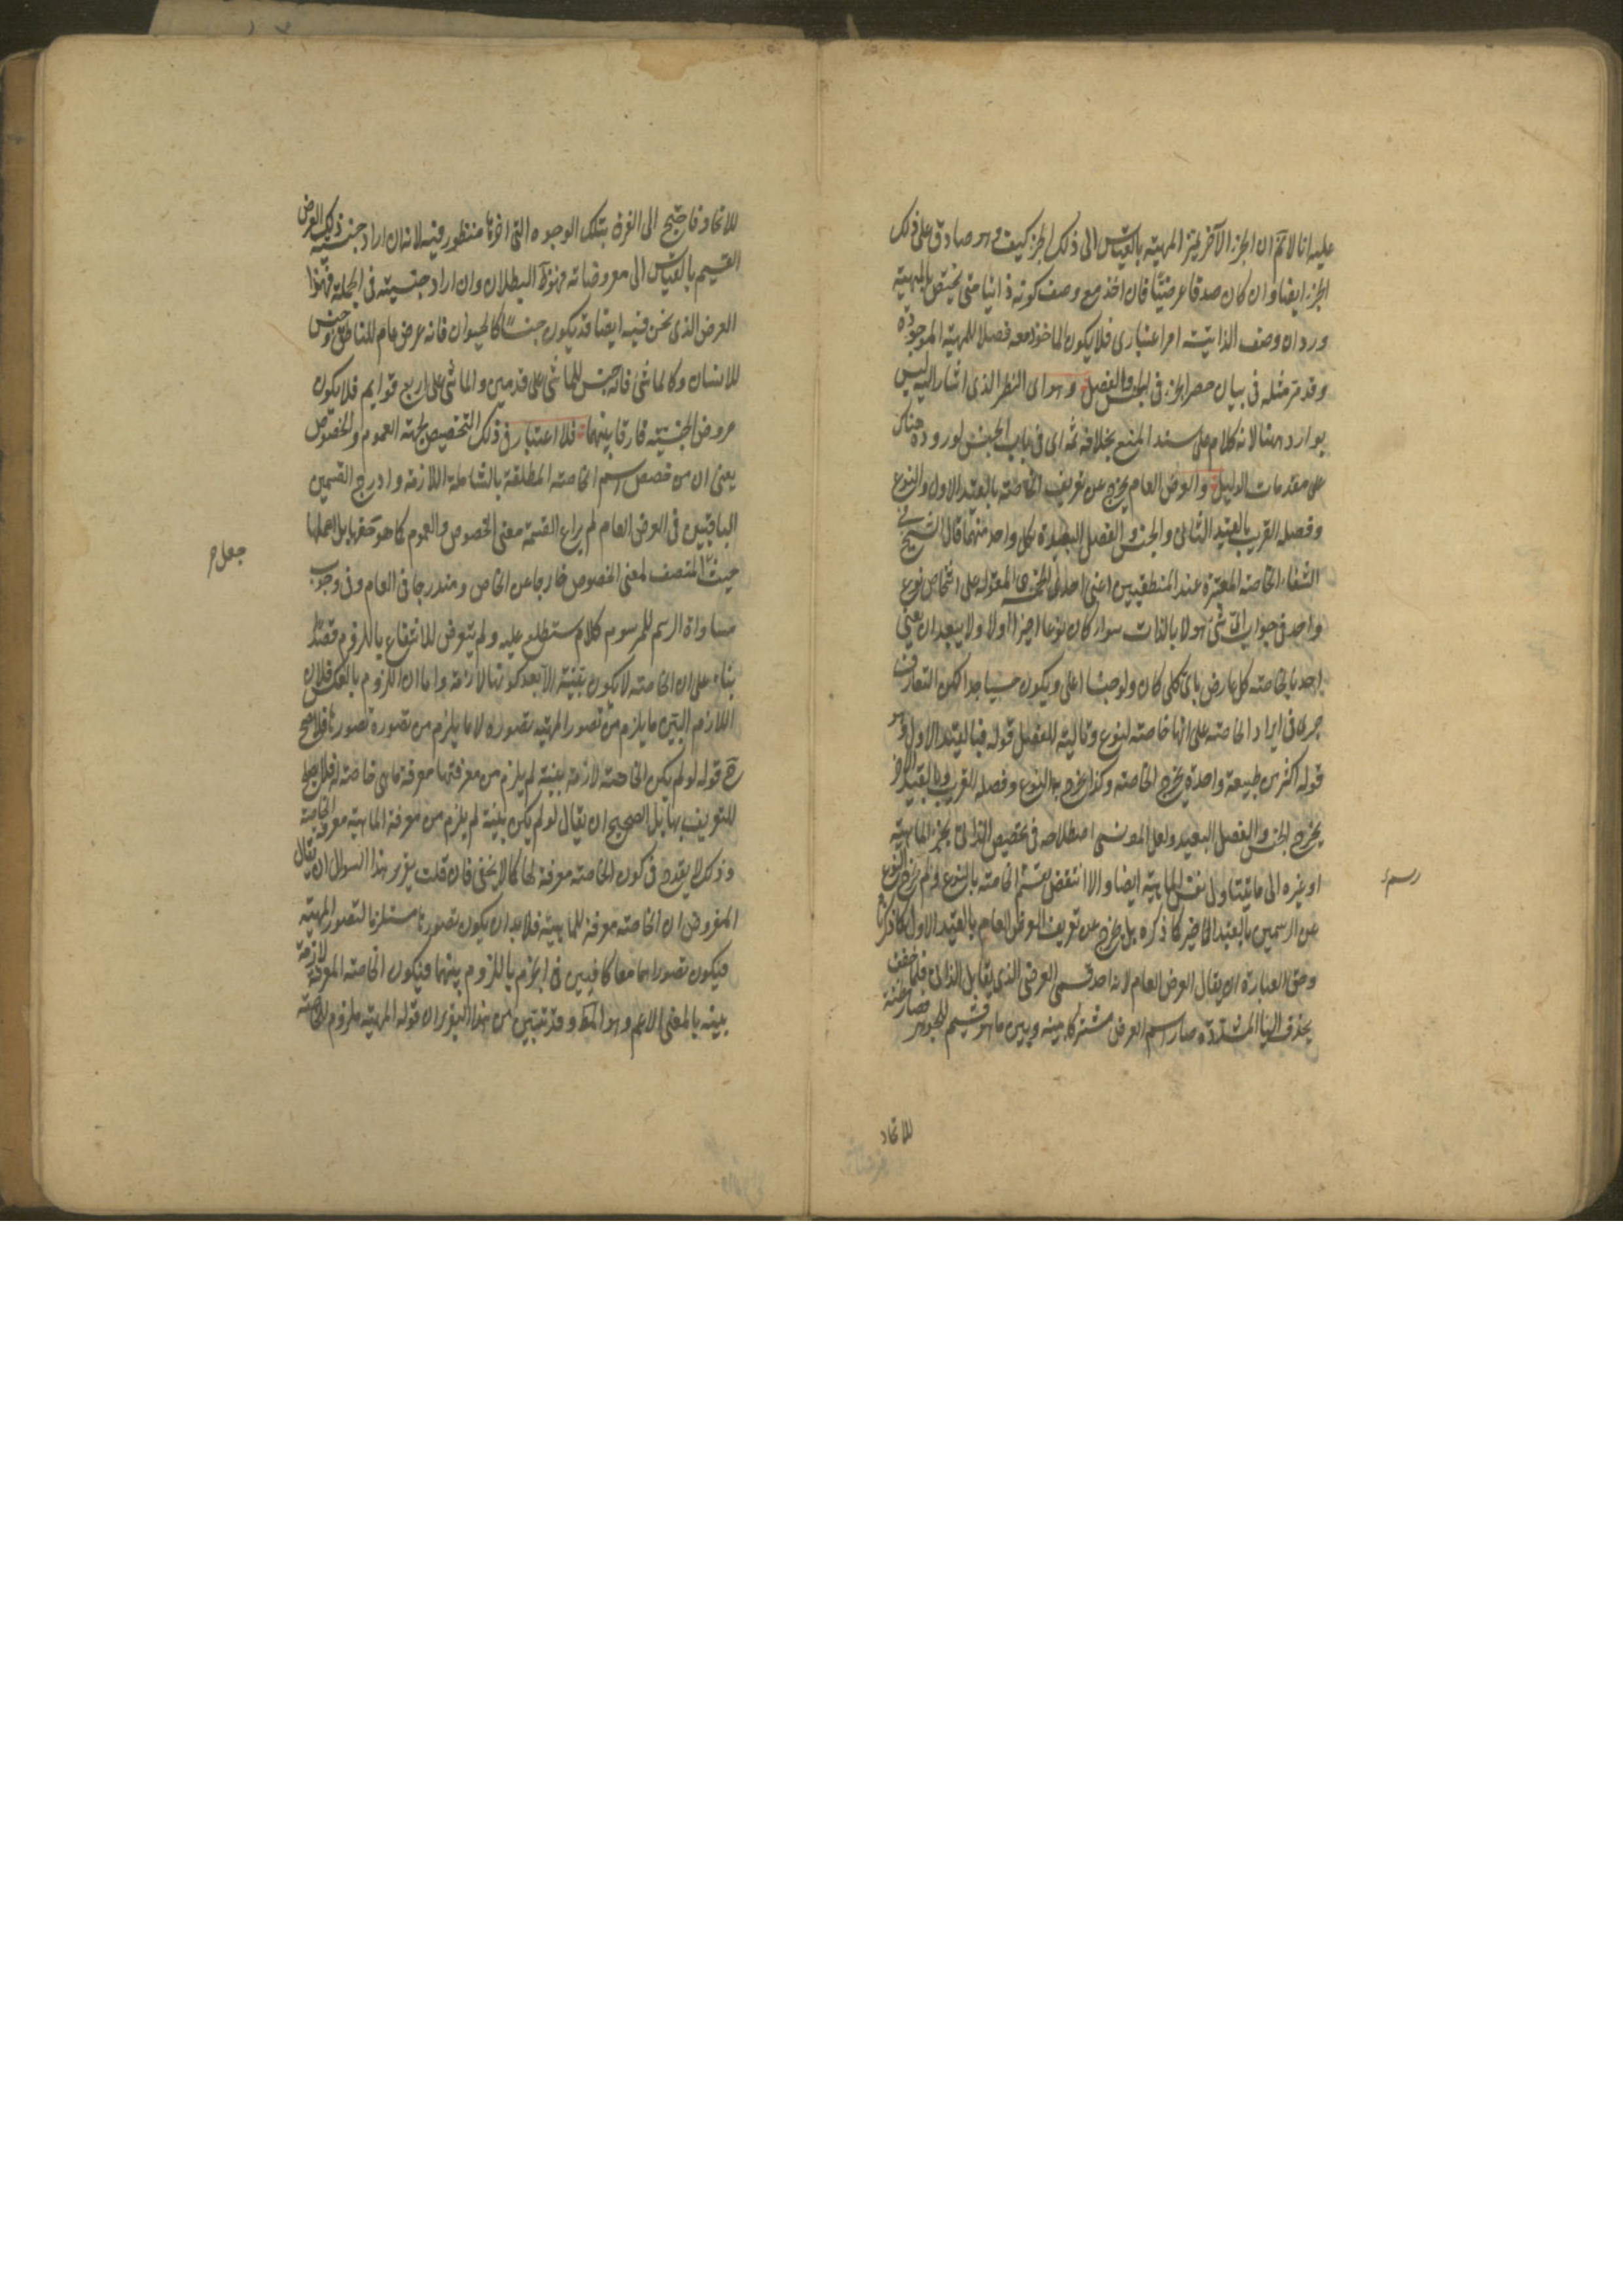 عليه انا لا نم ان الجزء الآخر يميز المهية بالقياس الى ذلك الجزء كيف وهو صادق على ذلك
الجزء ايضا وان كان صدقا عرضيا فان اخذ مع وصف كونه ذاتيا حتى يختص بالمهية
ورد ان وصف الذاتية امر اعتبارى فلا يكون الماخوذ معه فصلا للمهية الموجودة
وقد مر مثله فى بيان حصر الجزء فى الجنس والفصل وهو اى النظر الذى اشار اليه ليس
بوارد ههنا لانه كلام على سند المنع بخلافه ثمه اى فى باب الجنس لوروده هناك
على مقدمات الدليل والعرض العام يخرج عن تعريف الخاصة بالقيد الاول والنوع
وفصله القريب بالقيد الثانى والجنس والفصل البعيد بكل واحد منهما قال الشيخ فى
الشفاء الخاصة المعتبرة عند المنطقيين اعنى احدى الخمسة المقولة على اشخاص نوع
واحد فى جواب اى شىء هو لا بالذات سواء كان نوعا اخيرا اولا ولا يبعد ان يعنى
احد بالخاصة كل عارض باى كلى كان ولو جنسا اعلى ويكون حسنا جدا لكن التعارف
جرى فى ايراد الخاصة على انها خاصة لنوع وتالية للفصل قوله فبالقيد الاول وهو
قوله اكثر من طبيعة واحدة يخرج الخاصة وكذا يخرج به النوع وفصله القريب وبالقيد الاخير
يخرج الجنس والفصل البعيد ولعل المص نسى اصطلاحه فى تخصيص الذاتى بجزء الماهية
او غيره الى ما يتناول نفس الماهية ايضا والا انتقض الخاصة بالنوع ولم يخرج النوع
رسم
عن الرسمين بالقيد الاخير كما ذكره بل يخرج عن تعريف العرض العام بالقيد الاول كما ذكرنا
وحق العبارة ان يقال العرضى العام لانه احد قسمى العرضى الذى يقابل الذاتى فلما خفف
بحذف الياء المشددة صار اسم العرض مشتركا بينه وبين ما هو قسيم للجوهر فصار مظنة
للاتحاد
للاتحاد فاحتيج الى الفرق بتلك الوجوه التى اخرها منظور فيه لانه ان اراد جنسية ذلك العرض
القسيم بالقياس الى معروضاته فهو ظ البطلان وان اراد جنسيته فى الجملة فهذا
العرض الذى نحن فيه ايضا قد يكون جنسا كالحيوان فانه عرض عام للناطق وجنس
للانسان وكالماشى فانه جنس للماشى على قدمين والماشى على اربع قوايم فلا يكون
عروض الجنسية فارقا بينهما فلا اعتبار فى ذلك التخصيص لجهة العموم والخصوص
يعنى ان من خصص اسم الخاصة المطلقة بالشاملة اللازمة وادرج القسمين
الباقيين فى العرض العام لم يراع القسمة معنى الخصوص والعموم كما هو حقها بل اهملها
جعل
حيث المتصف لمعنى الخصوص خارجا عن الخاص ومندرجا فى العام وفى وجوب
مساواة الرسم للمرسوم كلام ستطلع عليه ولم يتعرض للانتفاع باللزوم قصدا
بناء على ان الخاصة لا تكون بينة الا بعد كونها لازمة واما ان اللزوم بالعكس فلان
اللازم البين ما يلزم من تصور المهية تصوره لا ما يلزم من تصوره تصورها فلا يصح
ح قوله لو لم يكن الخاصة لازمة بينة لم يلزم من معرفتها معرفة ما هى خاصة له فلا يصلح
للتعريف بها بل الصحيح ان يقال لو لم يكن بينة لم يلزم من معرفة الماهية معرفة الخاصة
وذلك لا يقدح فى كون الخاصة معرفة لها كما لا يخفى فان قلت يقرر هذا السوال ان يقال
المفروض ان الخاصة معرفة للماهية فلا بد ان يكون تصورها مستلزما لتصور المهية
فيكون تصوراهما معا كافيين فى الجزم باللزوم بينهما فيكون الخاصة المعرفة لازمة
بينة بالمعنى الاعم وهو المط وقد تبين من هذا التقرير ان قوله المهية ملزوم الخاصة